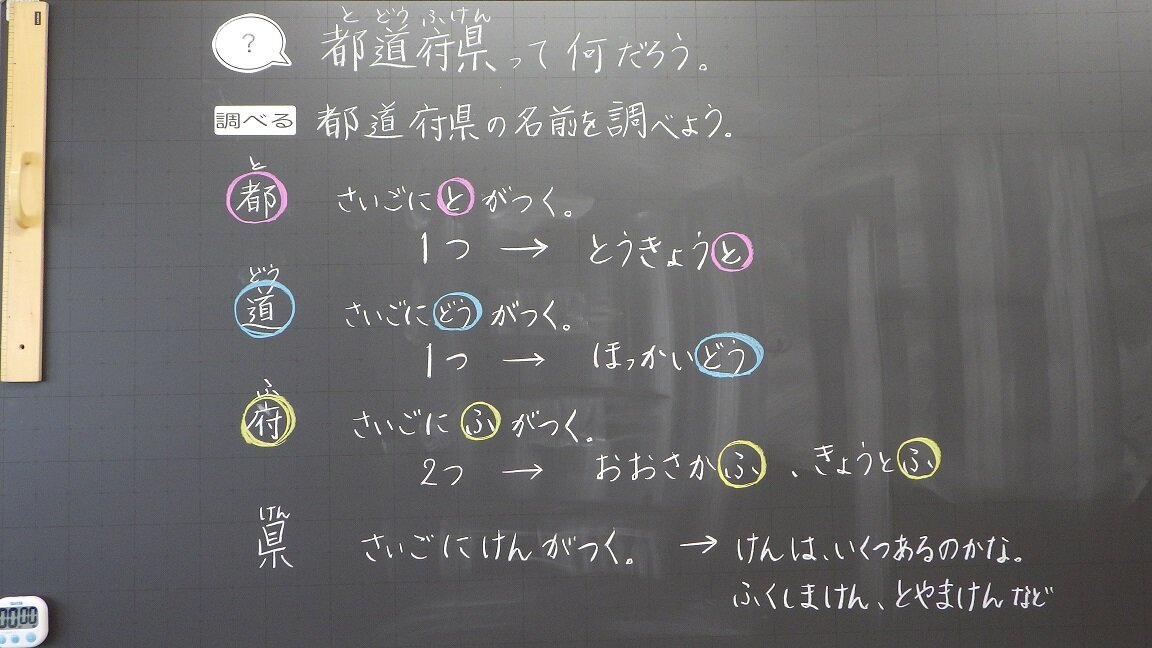 と どう ふ けん
? 都道府県って何だろう。
調べる 都道府県の名前を調べよう。
と
都 さいごにとがつく。
1つ → とうきょうと
どう
道 さいごにどうがつく。
1つ → ほっかいどう
ふ
府 さいごにふがつく。
2つ → おおさかふ、きょうとふ
けん
県 さいごにけんがつく。 → けんは、いくつあるのかな。
ふくしまけん、とやまけんなど
00:00